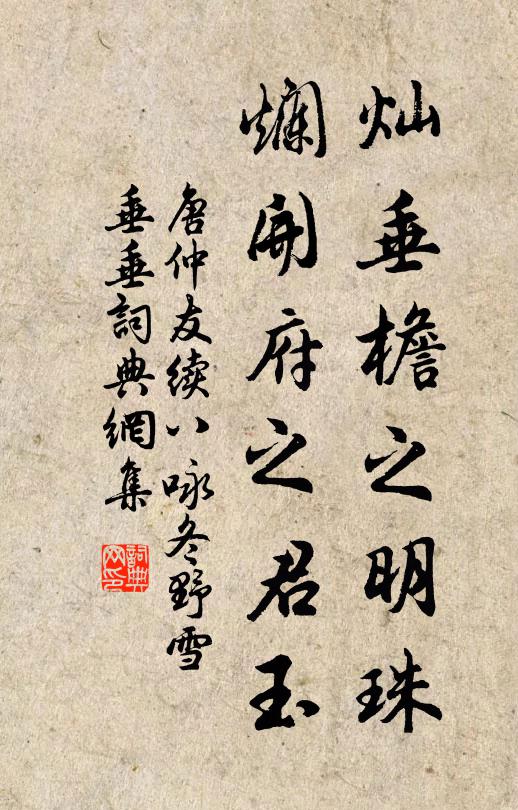 灿垂檐之明珠
爛開府之君玉
唐仲友续八咏冬野雪
垂垂詞典網集
詞典网印